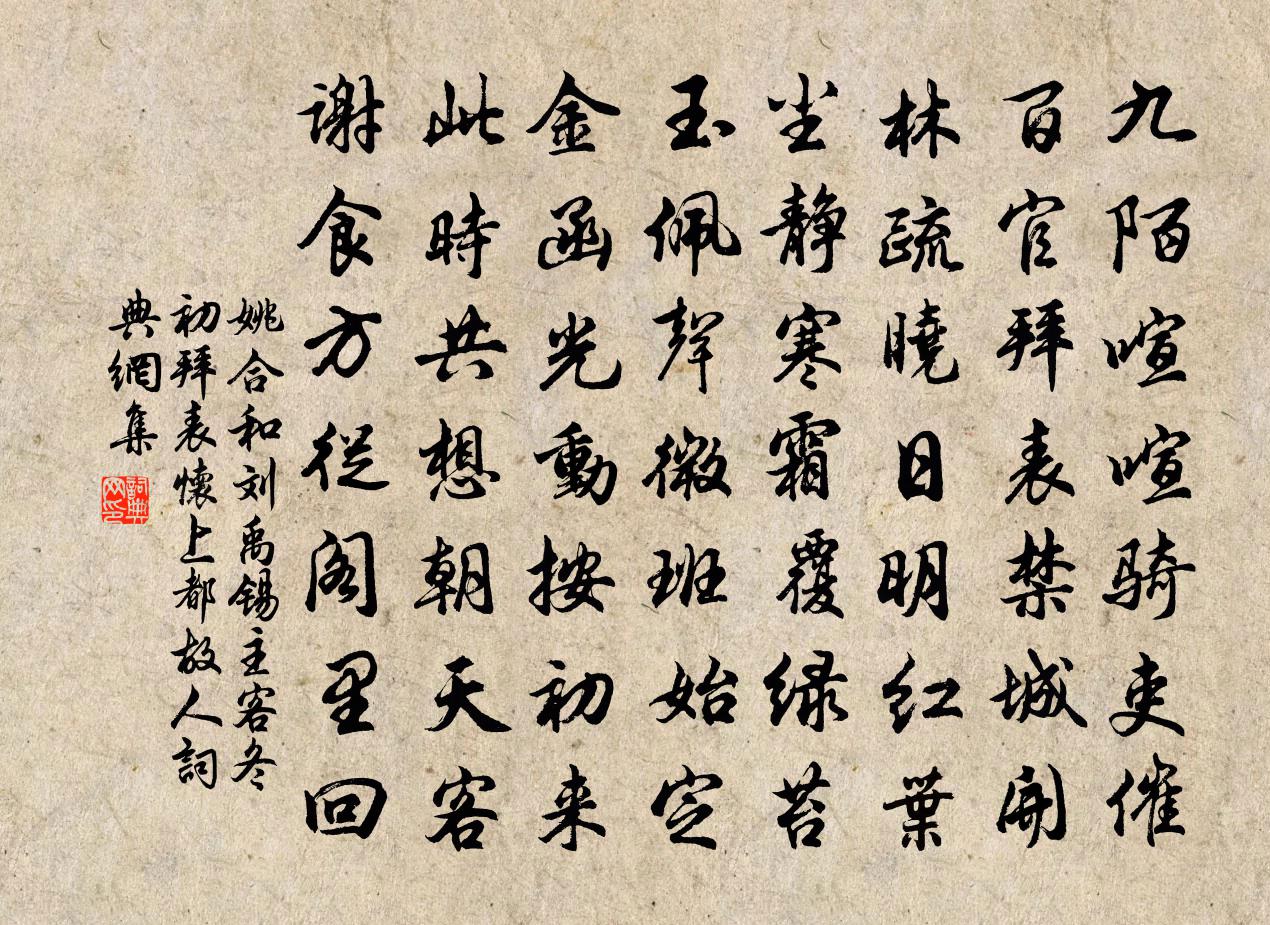 九陌喧喧騎吏催
百官拜表禁城開
林疏曉日明红葉
尘静寒霜覆绿苔
玉佩聲微班始定
金函光動按初来
此時共想朝天客
谢食方從阁里回
姚合和刘禹锡主客冬
初拜表懷上都故人詞
典網集
詞典
网印